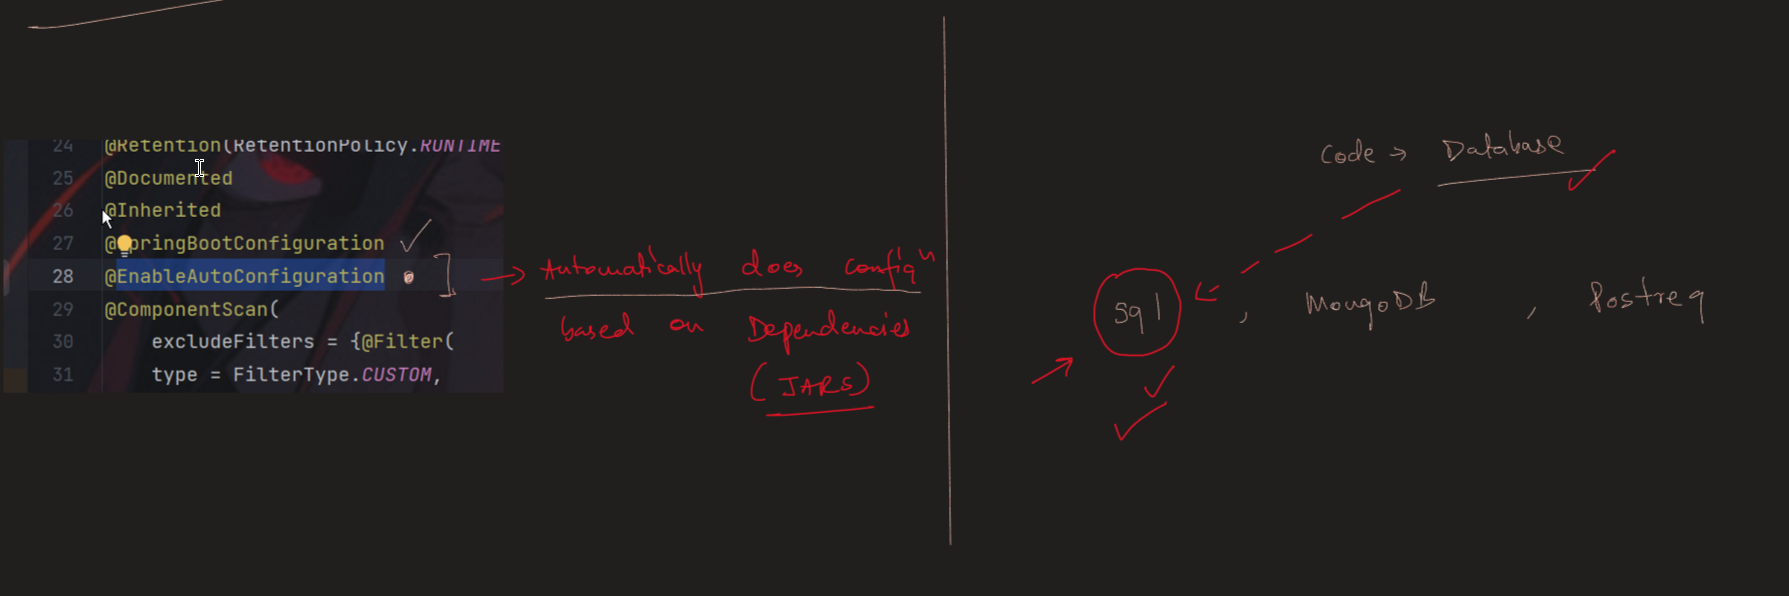 24 @Retention(RetentionPolicy.RUNTIME
25 @Documented
26 @Inherited
27 @SpringBootConfiguration
28 @EnableAutoConfiguration
29 @ComponentScan(
30 excludeFilters = {@Filter(
31 type = FilterType.CUSTOM,
Automatically does configⁿ
based on Dependencies
(JARS)
Code → Database
sql , MongoDB , Postreq